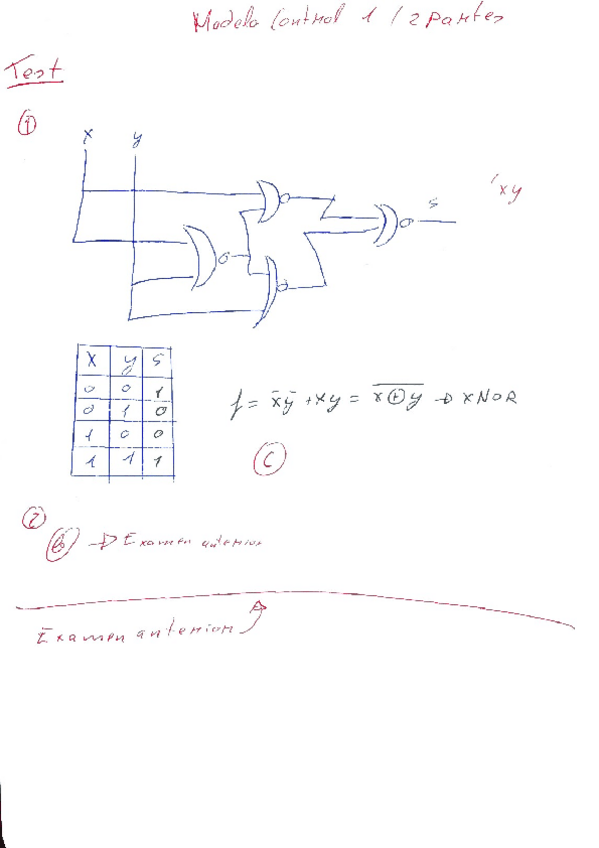 Modelo Control 1 / 2 partes
Test
1
x y
s
xy
x y s
0 0 1
0 1 0
1 0 0
1 1 1
f = x̄ȳ + xy = \overline{x⊕y} → XNOR
C
2
b → Examen anterior
Examen anterior